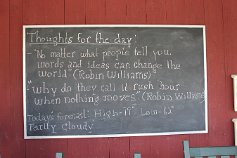 Thoughts for the day:
"No matter what people tell you,
words and ideas can change the
world" (Robin Williams)
"Why do they call it rush hour
when nothing moves" (Robin Williams)
Todays forecast: High-
Partly Cloudy